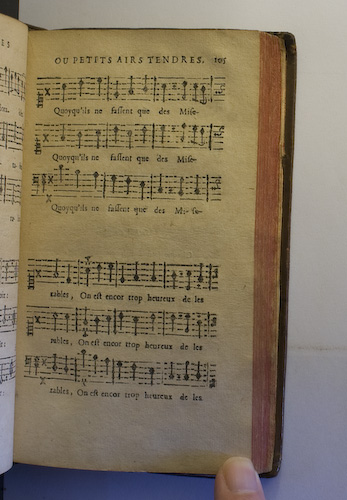 OU PETITS AIRS TENDRES. 105
Quoyqu'ils ne fassent que des Mise-
Quoyqu'ils ne fassent que des Mise-
Quoyqu'ils ne fassent que des Mi- se-
rables, On est encor trop heureux de les
rables, On est encor trop heureux de les
rables, On est encor trop heureux de les